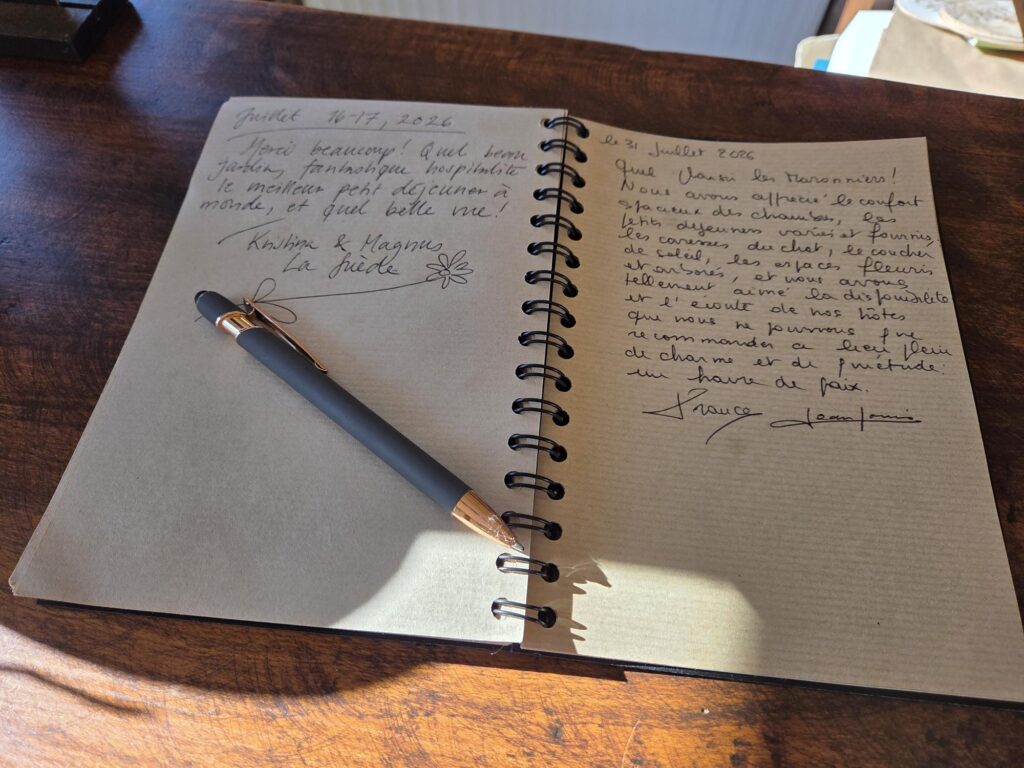 Juillet 16-17, 2026
Merci beaucoup! Quel beau
jardin, fantastique hospitalité
le meilleur petit dejeuner à
monde, et quel belle vue!
Kristina & Magnus
La Suède
le 31 Juillet 2026
Quel les Maronniers!
Nous avons apprécié le confort
spacieux des chambres, les
petits dejeuners variés et fournis,
les caresses du chat, le coucher
de soleil, les espaces fleuris
et arborés, et nous avons
tellement aimé la disponibilité
et l'écoute de nos hôtes
que nous ne pouvons que
recommander ce lieu plein
de charme et de quiétude:
un havre de paix.
France Jean Louis